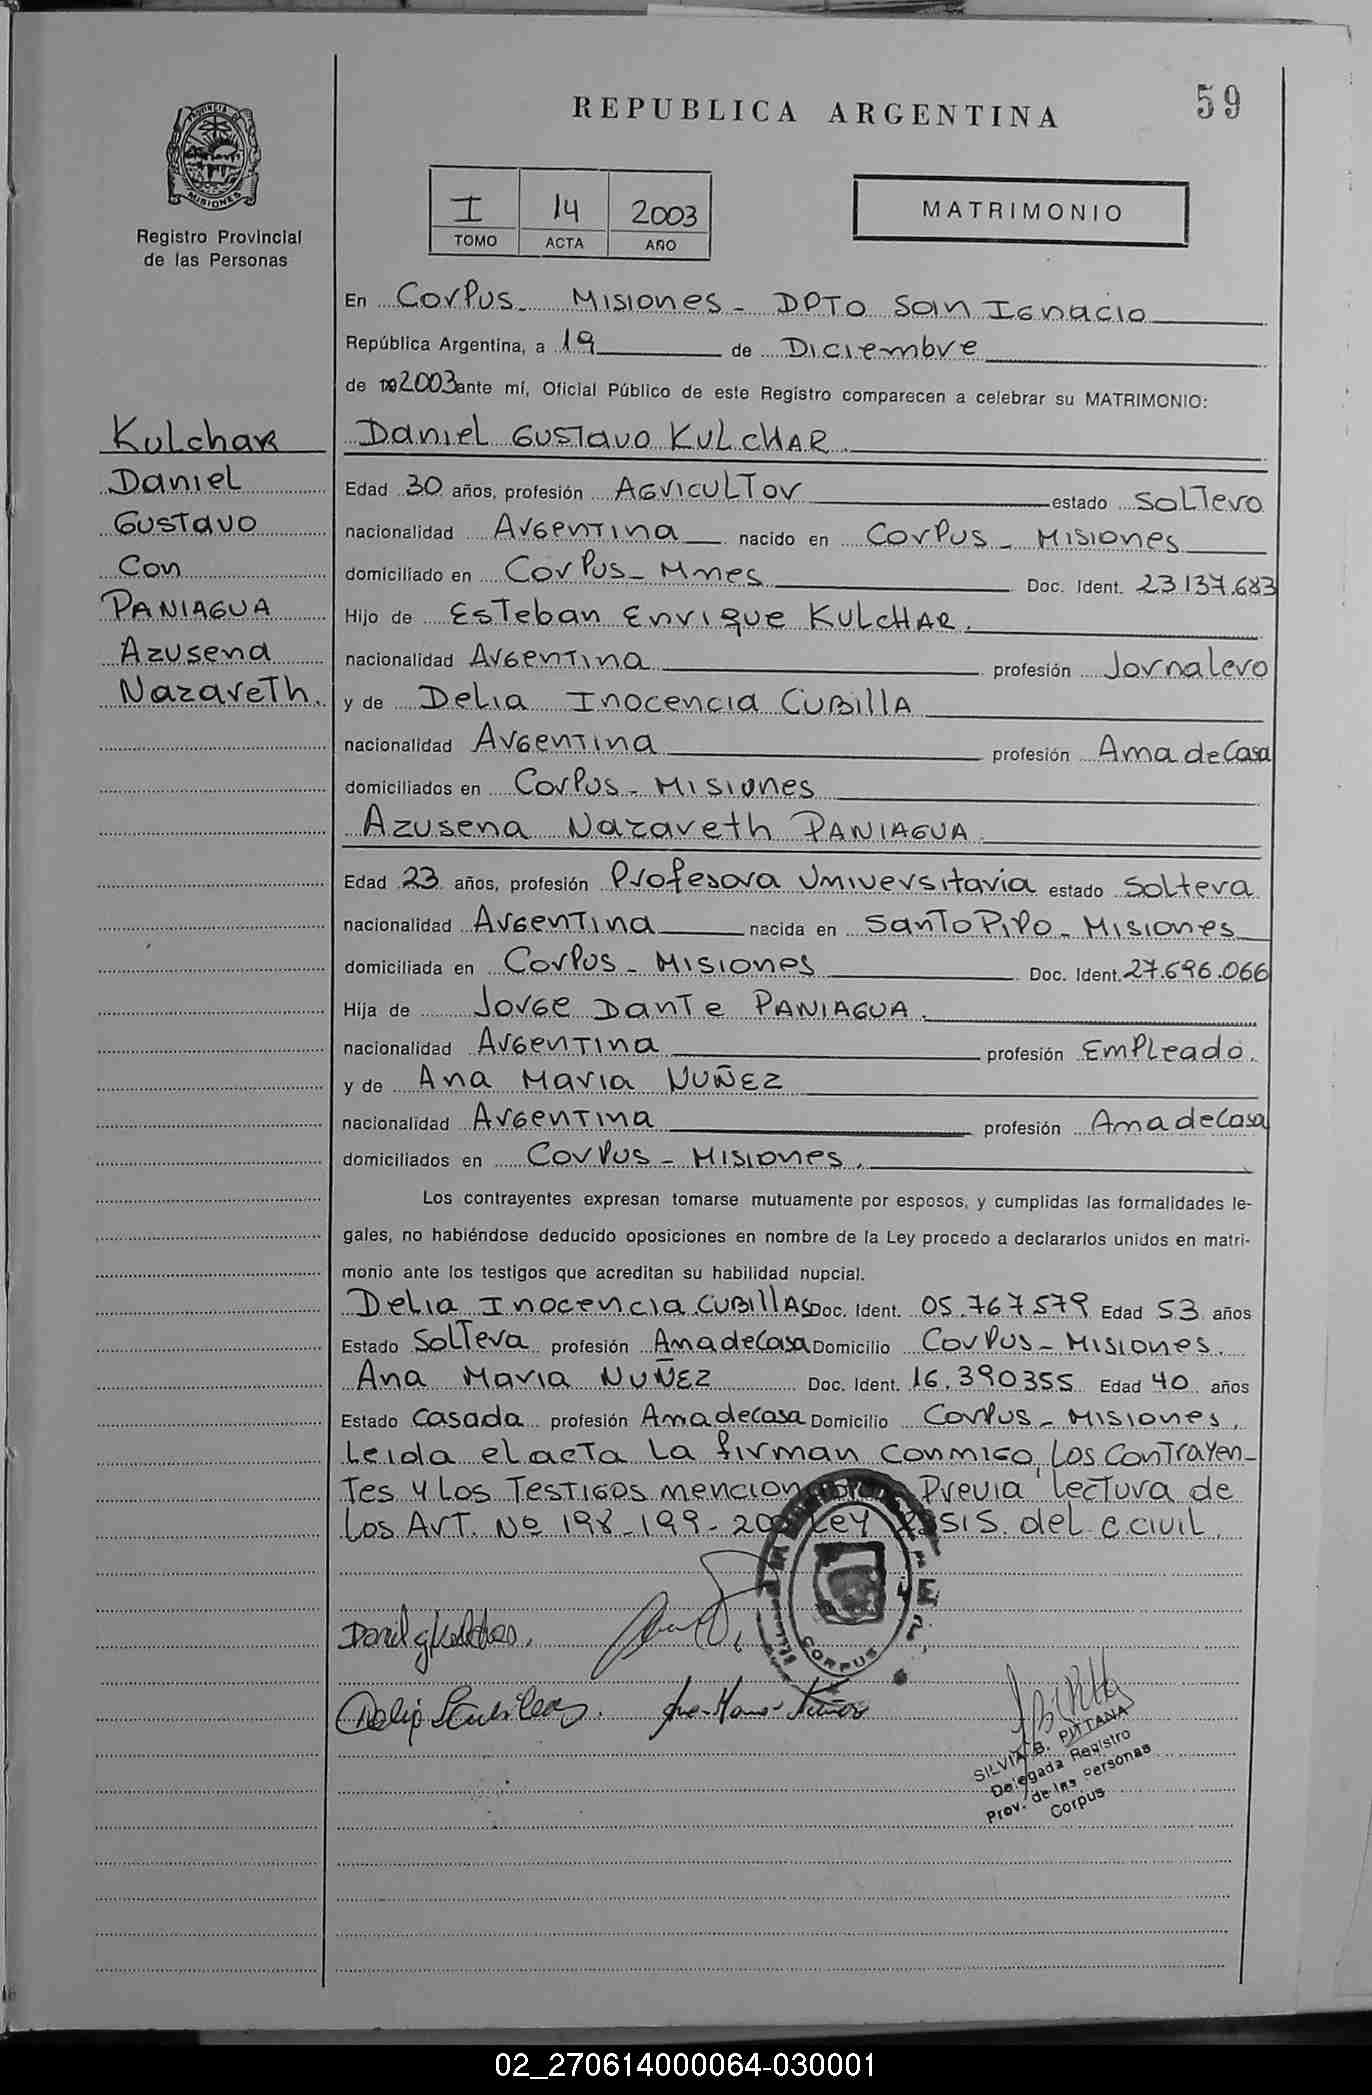 REPUBLICA ARGENTINA
59
PROVINCIA DE
MISIONES
Registro Provincial
de las Personas
I 14 2003
TOMO ACTA AÑO
MATRIMONIO
En Corpus - Misiones - DPTO San Ignacio
República Argentina, a 19 de Diciembre
de 2003 ante mí, Oficial Público de este Registro comparecen a celebrar su MATRIMONIO:
Kulchar
Daniel
Gustavo
Con
PANIAGUA
Azusena
Nazareth.
Daniel Gustavo KULCHAR.
Edad 30 años, profesión Agricultor estado Soltero
nacionalidad Argentina nacido en Corpus - Misiones
domiciliado en Corpus - Mnes Doc. Ident. 23.137.683
Hijo de Esteban Enrique KULCHAR.
nacionalidad Argentina profesión Jornalero
y de Delia Inocencia CUBIllA
nacionalidad Argentina profesión Ama de Casa
domiciliados en Corpus - Misiones
Azusena Nazareth PANIAGUA.
Edad 23 años, profesión Profesora Universitaria estado Soltera
nacionalidad Argentina nacida en Santo Pipo - Misiones
domiciliada en Corpus - Misiones Doc. Ident. 27.696.066
Hija de Jorge Dante PANIAGUA.
nacionalidad Argentina profesión Empleado.
y de Ana Maria NUÑEZ
nacionalidad Argentina profesión Ama de Casa
domiciliados en Corpus - Misiones.
Los contrayentes expresan tomarse mutuamente por esposos, y cumplidas las formalidades le-
gales, no habiéndose deducido oposiciones en nombre de la Ley procedo a declararlos unidos en matri-
monio ante los testigos que acreditan su habilidad nupcial.
Delia Inocencia CUBIllAS Doc. Ident. 05.767.579 Edad 53 años
Estado Soltera profesión Ama de Casa Domicilio Corpus - Misiones.
Ana Maria NUÑEZ Doc. Ident. 16.390355 Edad 40 años
Estado Casada profesión Ama de casa Domicilio Corpus - Misiones.
Leida el acta la firman conmigo, los Contrayen-
tes y los Testigos Previa lectura de
los Art. Nº 198-199- Ley del C. Civil.
CORPUS
Ana Maria Nuñez
SILVIA B. PITTANA
Delegada Registro
Prov. de las Personas
Corpus
02_270614000064-030001